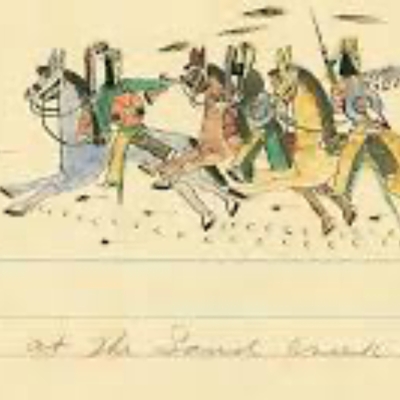 at the Sand Creek